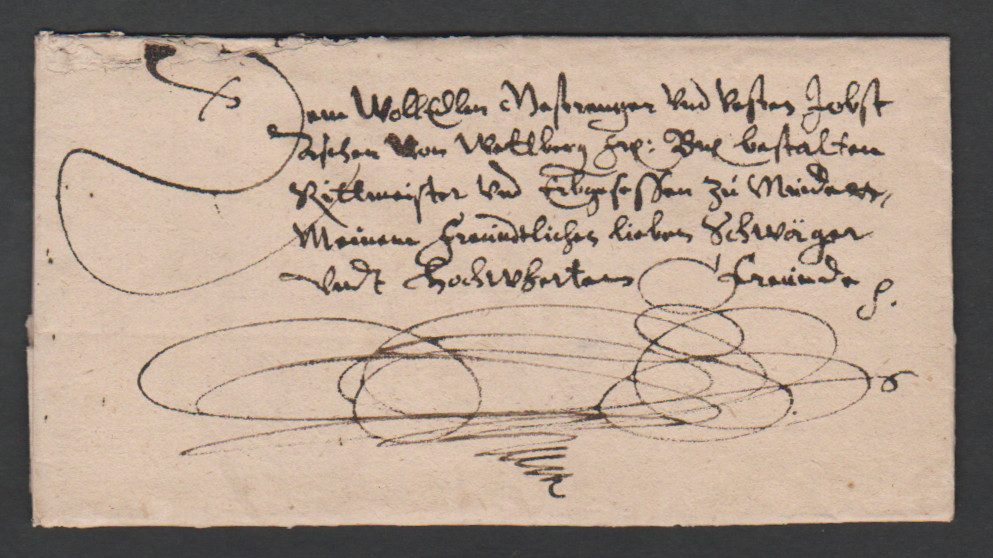 Dem WollEdlen Gestrengen Vnd Vesten Jobst
Aschen Von Wettberg frl: Br: bestalten
Rittmeister Vnd Erbgesessen zu Münder,
Meinem freundtlichen lieben Schwager
Vndt hochwehrten freunde